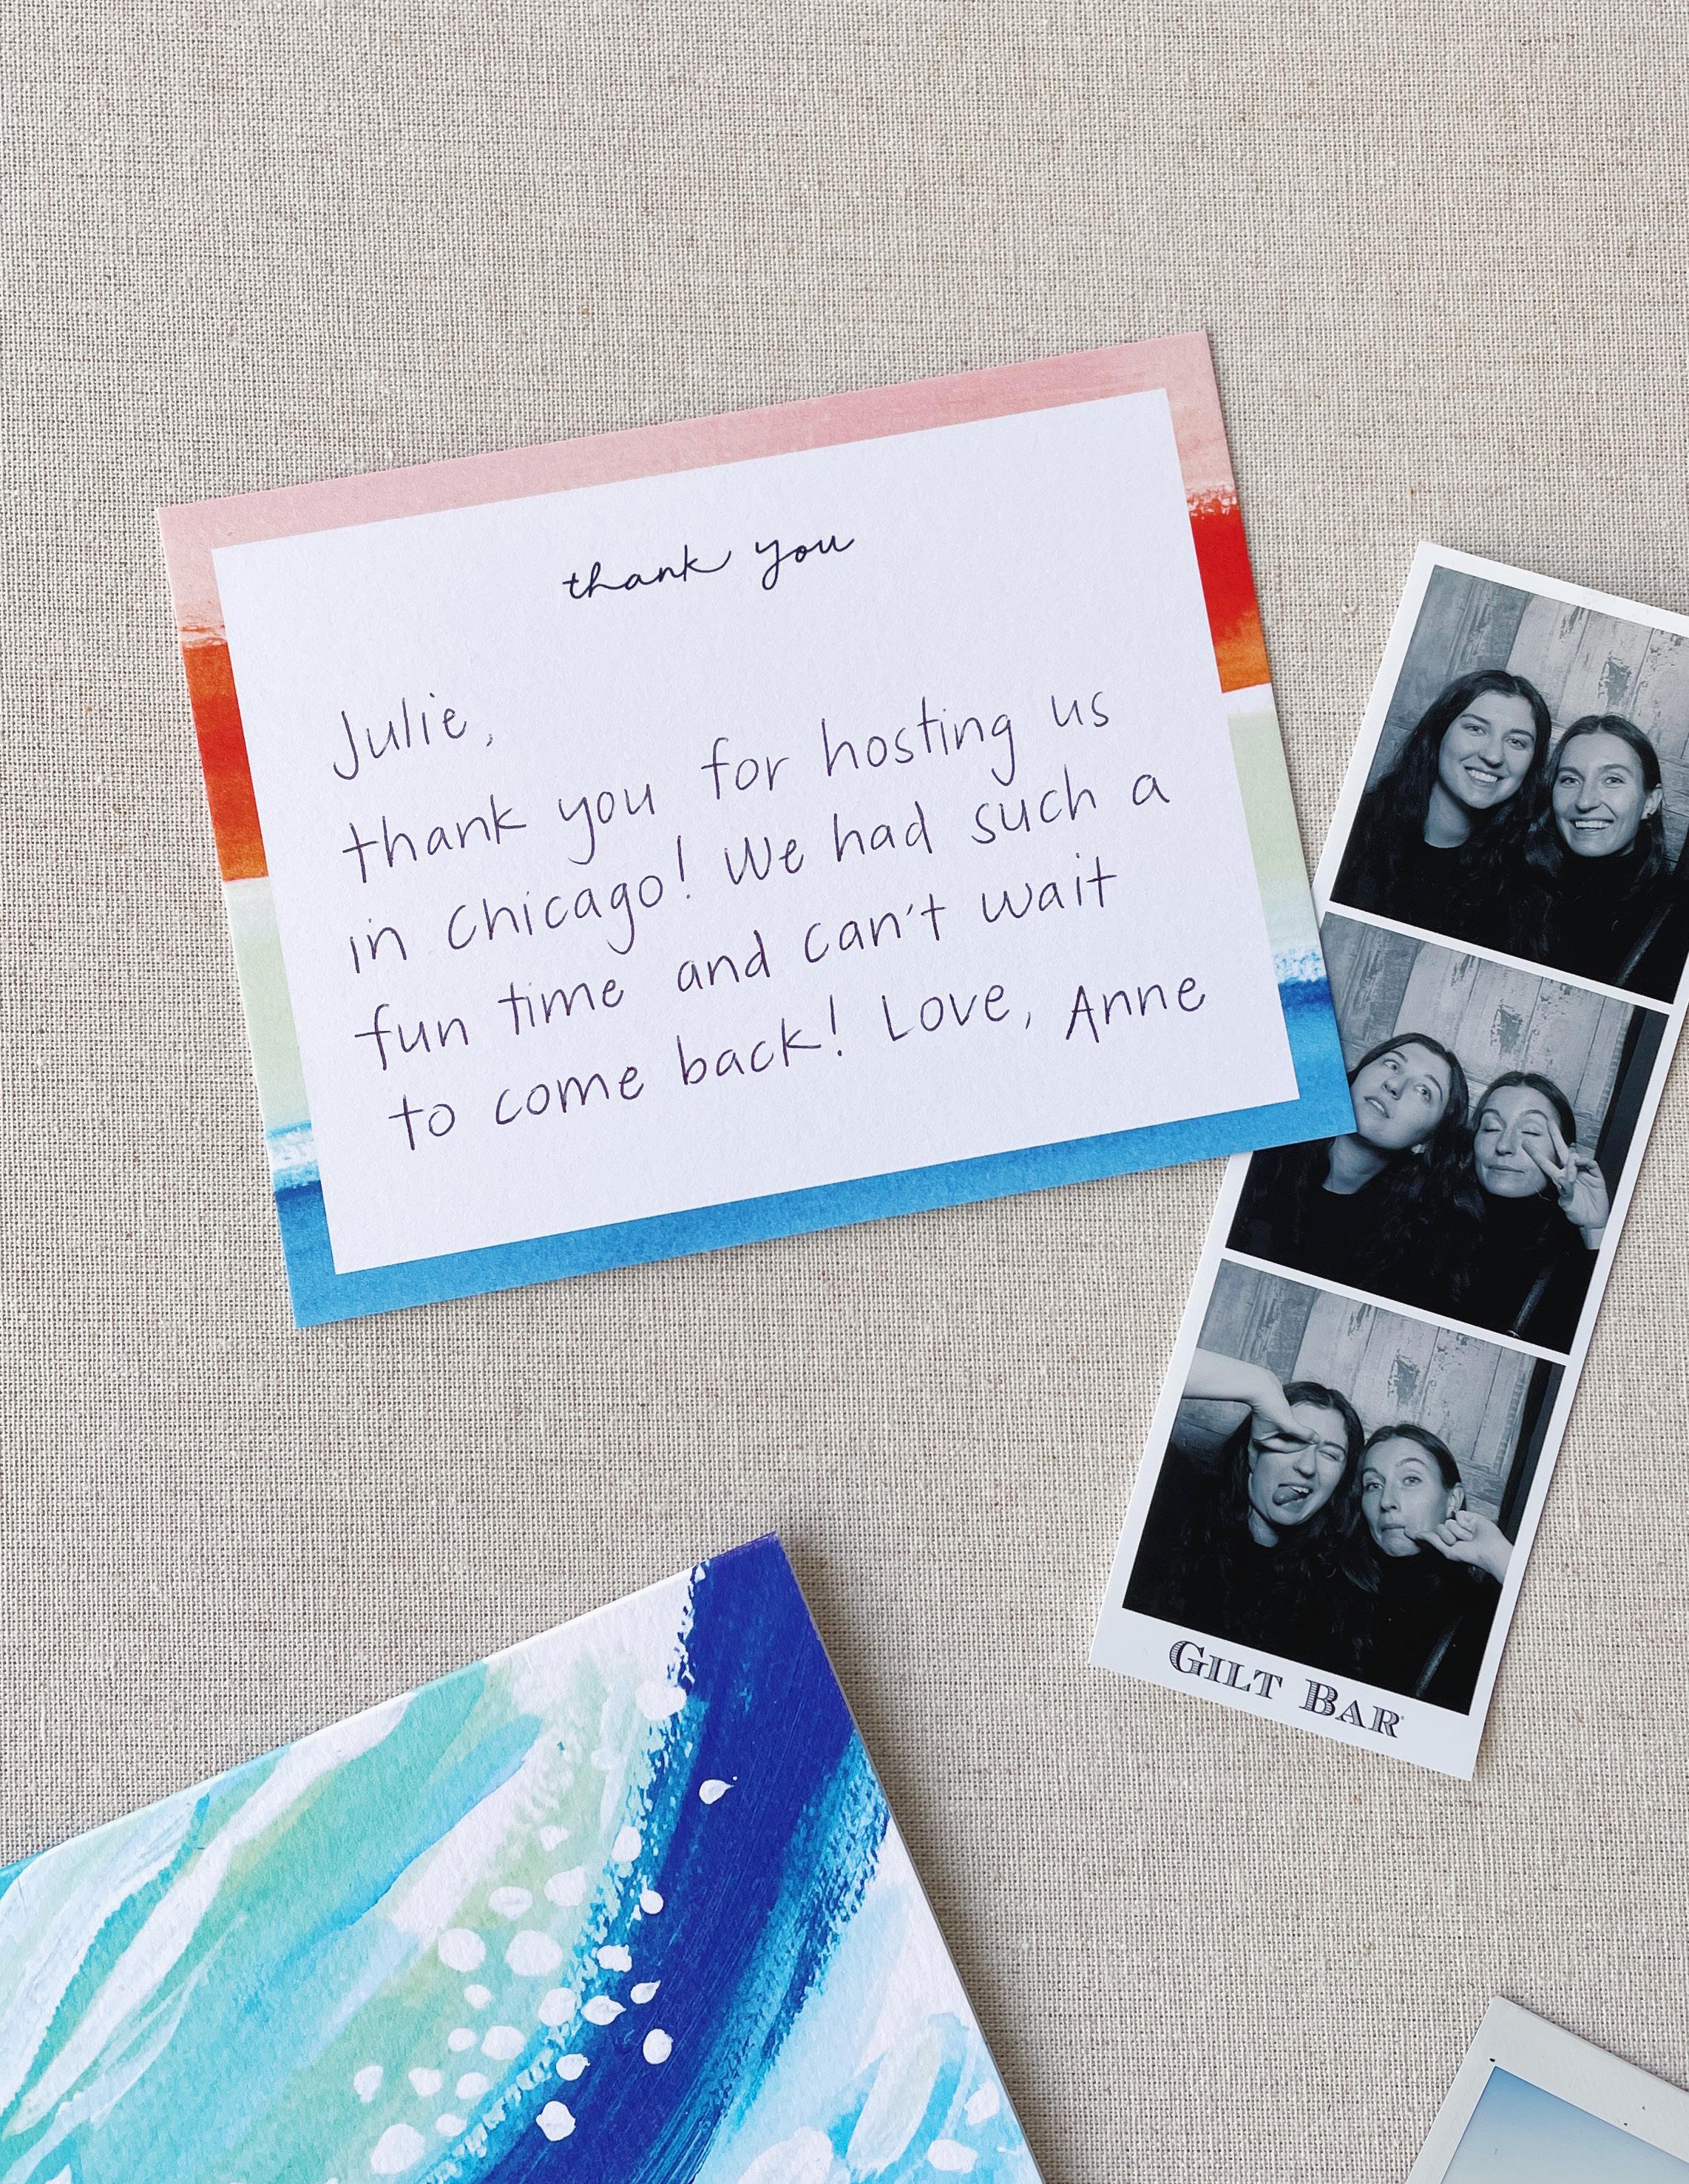 thank you
Julie,
thank you for hosting us
in Chicago! We had such a
fun time and can't wait
to come back! Love, Anne
GILT BAR